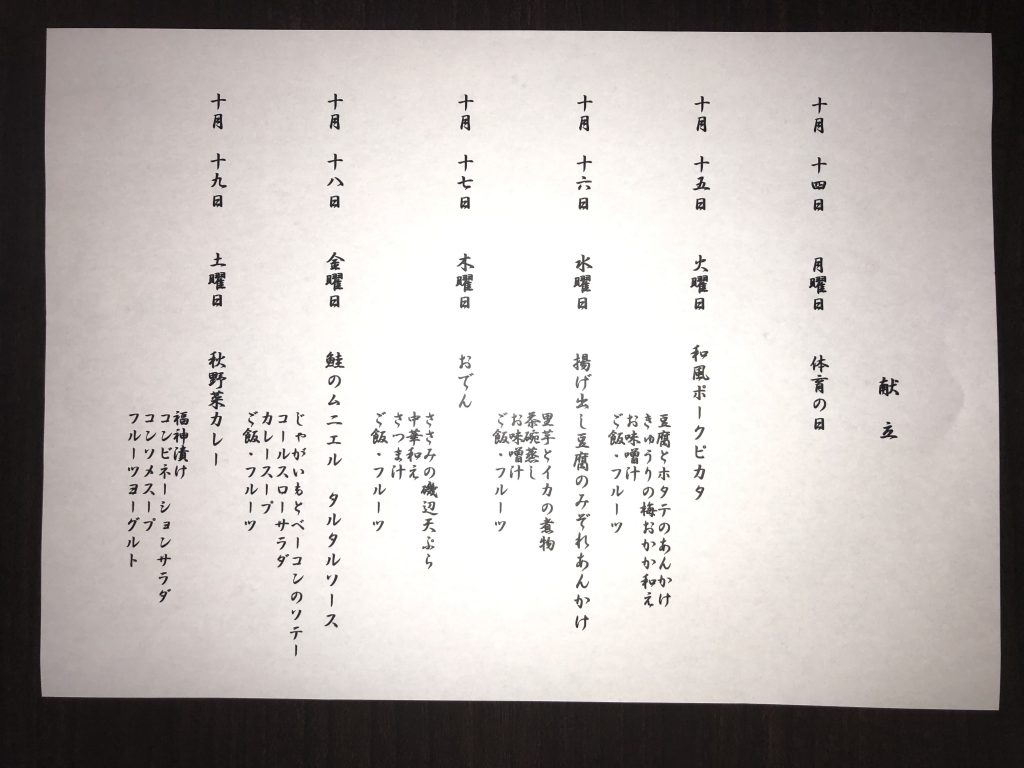 献立
十月 十四日 月曜日 体育の日
十月 十五日 火曜日 和風ポークピカタ
豆腐とホタテのあんかけ
きゅうりの梅おかか和え
お味噌汁
ご飯・フルーツ
十月 十六日 水曜日 揚げ出し豆腐のみぞれあんかけ
里芋とイカの煮物
茶碗蒸し
お味噌汁
ご飯・フルーツ
十月 十七日 木曜日 おでん
ささみの磯辺天ぷら
中華和え
さつま汁
ご飯・フルーツ
十月 十八日 金曜日 鮭のムニエル タルタルソース
じゃがいもとベーコンのソテー
コールスローサラダ
カレースープ
ご飯・フルーツ
十月 十九日 土曜日 秋野菜カレー
福神漬け
コンビネーションサラダ
コンソメスープ
フルーツヨーグルト